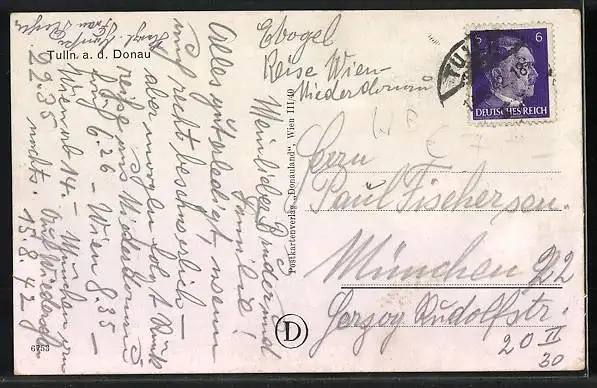 Tulln. a. d. Donau
Ebogel
Reise Wien-
Niederdonau
Mein lieber Bruder und
Familie!
Alles gut erledigt, wenn
auch recht beschwerlich –
aber morgen folgt Rück
reise aus Niederdonau
früh 6.26 – Wien 8.35 –
Wien ab 14. – München an
22.35 Auf Wiedersehn
nachts. 15.8.42
Postkartenverlag „Donauland“, Wien III/40
6
TULLN
DEUTSCHES REICH
Herrn
Paul Fischer sen.
München 22
Herzog Rudolfstr.
20 II
30
D
6753